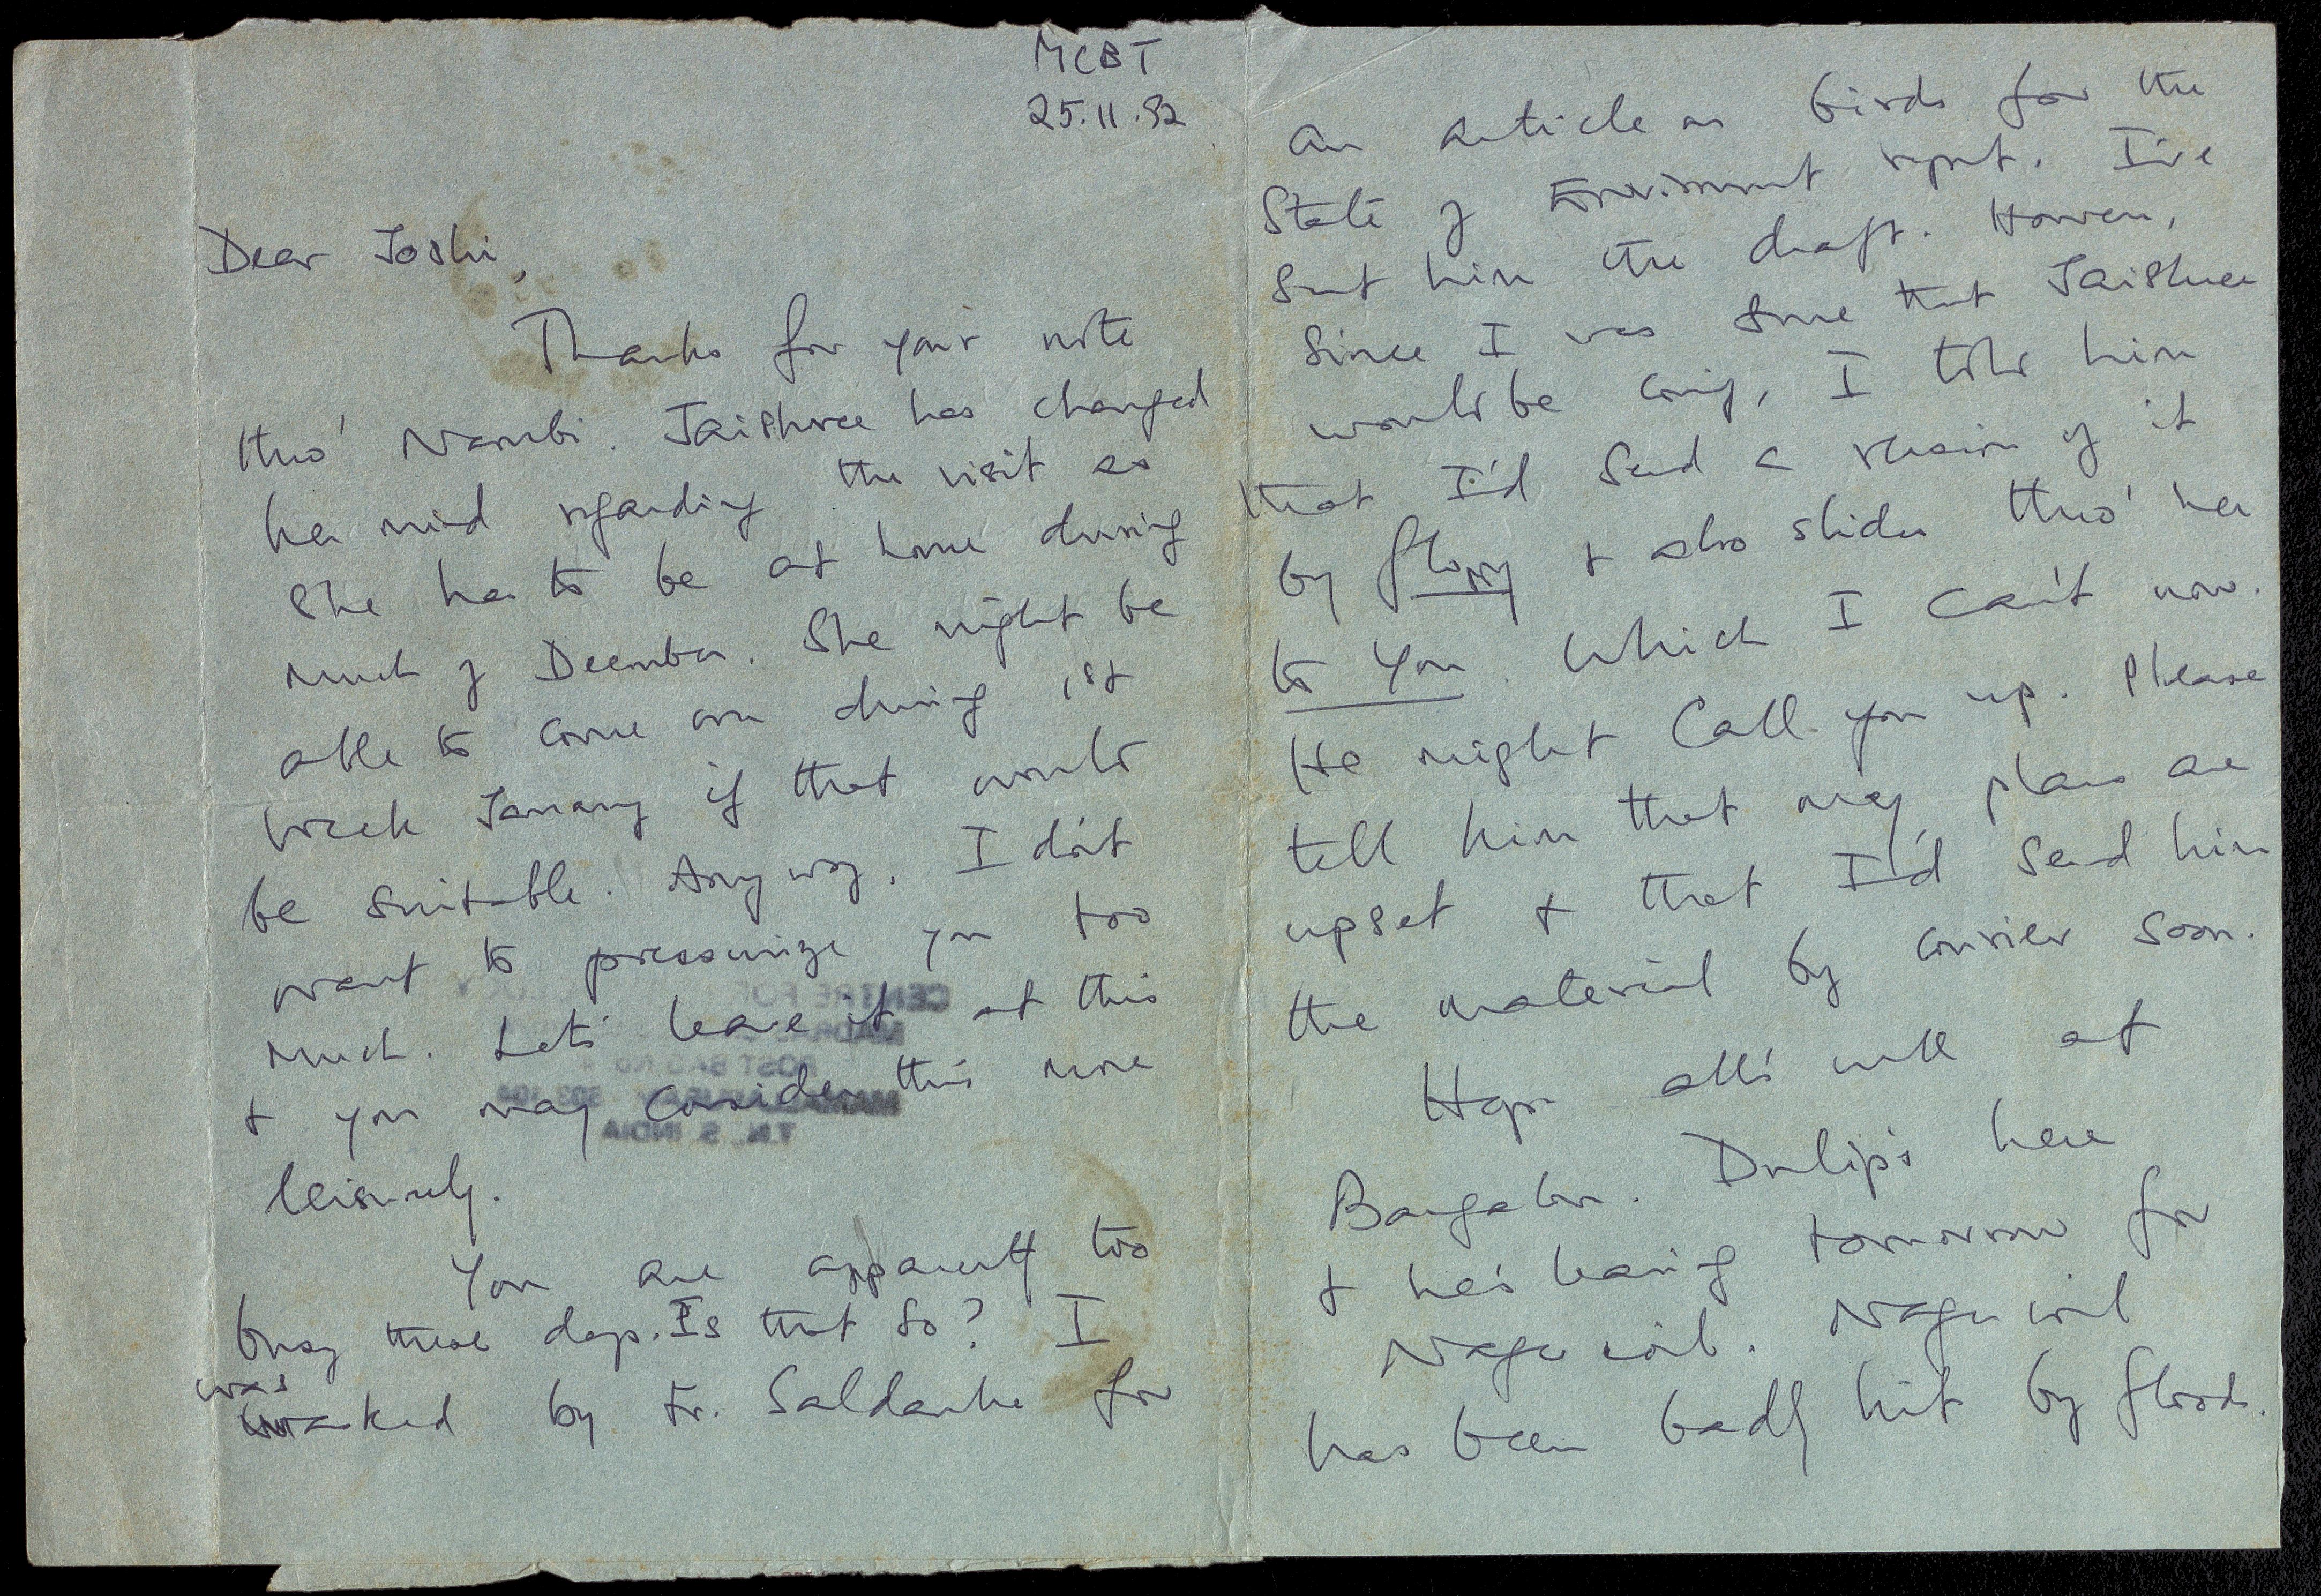 MCBT
25.11.92
Dear Joshi,
Thanks for your note
thro' Nambi. Jaishree has changed
her mind regarding the visit as
she has to be at home during
much of December. She might be
able to come over during 1st
week January if that would
be suitable. Anyway, I don't
want to pressurize you too
much. Let's leave it at this
& you may consider this more
leisurely.
You are apparently too
busy these days. Is that so? I
was asked by Fr. Saldanha for
CENTRE FOR
MADRAS
POST BAG No
T.N., S. INDIA
an article on birds for the
State of Environment report. I've
sent him the draft. However,
since I was sure that Jaishree
would be coming, I told him
that I'd send a version of it
by floppy & also slides thro' her
to you. Which I can't now.
He might call you up. Please
tell him that my plans are
upset & that I'd send him
the material by courier soon.
Hope all's well at
Bangalore. Dulip's here
& he's leaving tomorrow for
Nagercoil. Nagercoil
has been badly hit by floods.